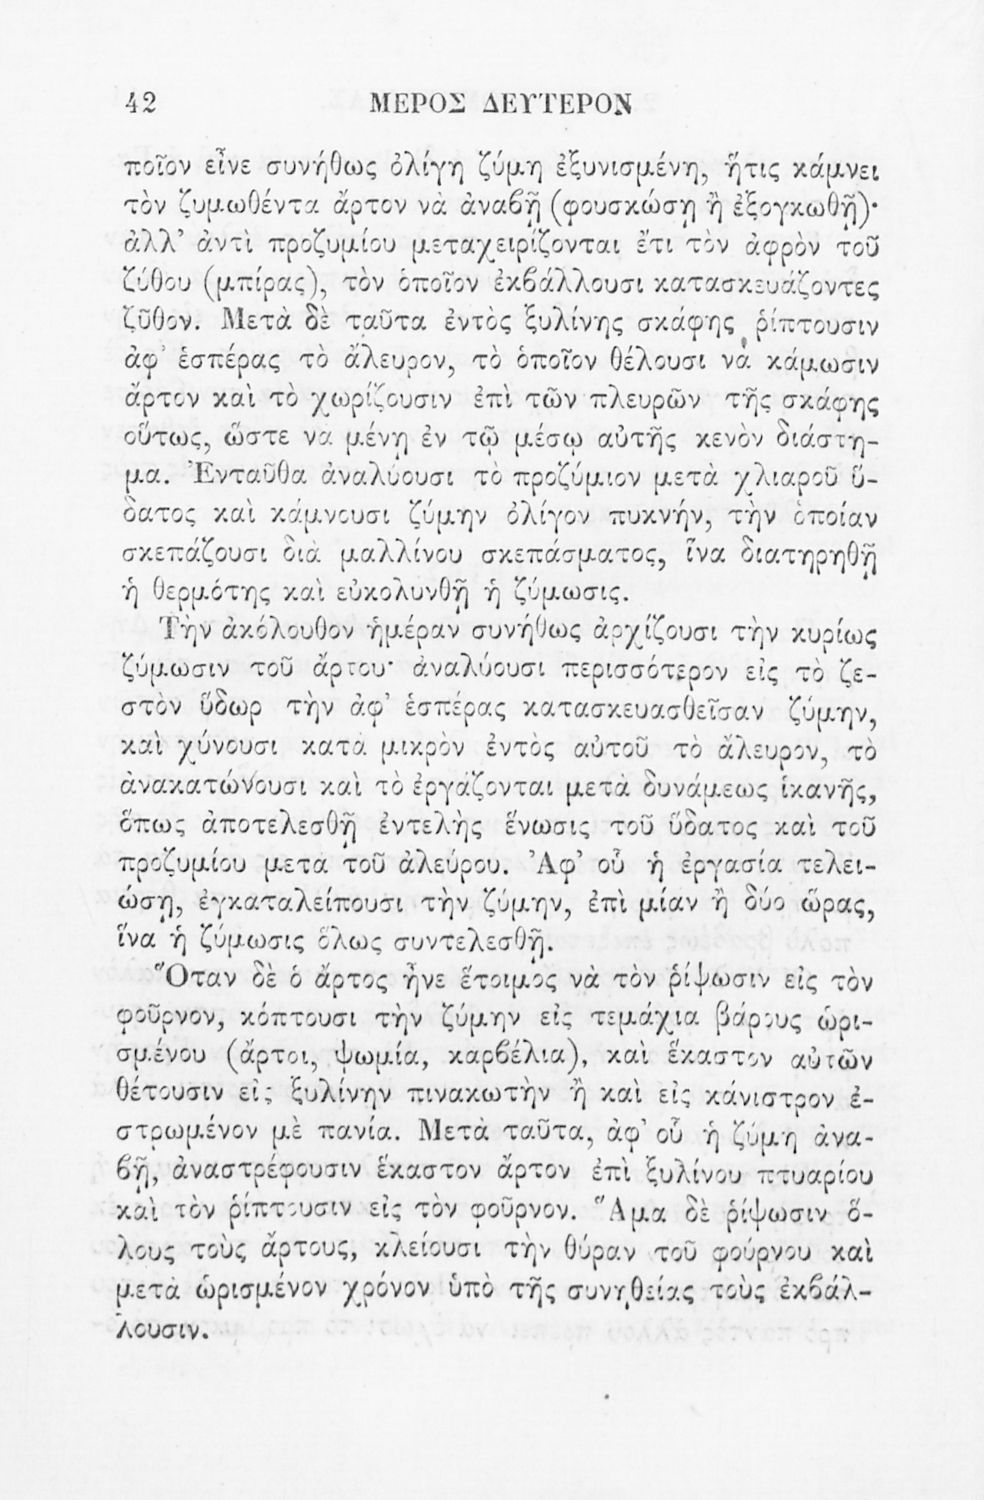 42 ΜΕΡΟΣ ΔΕΥΤΕΡΟΝ
ποῖον εἶνε συνήθως ὀλίγη ζύμη ἐξυνισμένη, ἥτις κάμνει
τὸν ζυμωθέντα ἄρτον νὰ ἀναβῇ (φουσκώσῃ ἢ ἐξογκωθῇ)·
ἀλλ’ ἀντὶ προζυμίου μεταχειρίζονται ἔτι τὸν ἀφρὸν τοῦ
ζύθου (μπίρας), τὸν ὁποῖον ἐκβάλλουσι κατασκευάζοντες
ζῦθον. Μετὰ δὲ ταῦτα ἐντὸς ξυλίνης σκάφης ῥίπτουσιν
ἀφ’ ἑσπέρας τὸ ἄλευρον, τὸ ὁποῖον θέλουσι νὰ κάμωσιν
ἄρτον καὶ τὸ χωρίζουσιν ἐπὶ τῶν πλευρῶν τῆς σκάφης
οὕτως, ὥστε νὰ μένῃ ἐν τῷ μέσῳ αὐτῆς κενὸν διάστη-
μα. Ἐνταῦθα ἀναλύουσι τὸ προζύμιον μετὰ χλιαροῦ ὕ-
δατος καὶ κάμνουσι ζύμην ὀλίγον πυκνήν, τὴν ὁποίαν
σκεπάζουσι διὰ μαλλίνου σκεπάσματος, ἵνα διατηρηθῇ
ἡ θερμότης καὶ εὐκολυνθῇ ἡ ζύμωσις.
Τὴν ἀκόλουθον ἡμέραν συνήθως ἀρχίζουσι τὴν κυρίως
ζύμωσιν τοῦ ἄρτου· ἀναλύουσι περισσότερον εἰς τὸ ζε-
στὸν ὕδωρ τὴν ἀφ’ ἑσπέρας κατασκευασθεῖσαν ζύμην,
καὶ χύνουσι κατὰ μικρὸν ἐντὸς αὐτοῦ τὸ ἄλευρον, τὸ
ἀνακατώνουσι καὶ τὸ ἐργάζονται μετὰ δυνάμεως ἱκανῆς,
ὅπως ἀποτελεσθῇ ἐντελὴς ἕνωσις τοῦ ὕδατος καὶ τοῦ
προζυμίου μετὰ τοῦ ἀλεύρου. Ἀφ’ οὗ ἡ ἐργασία τελει-
ώσῃ, ἐγκαταλείπουσι τὴν ζύμην, ἐπὶ μίαν ἢ δύο ὥρας,
ἵνα ἡ ζύμωσις ὅλως συντελεσθῇ.
Ὅταν δὲ ὁ ἄρτος ἦνε ἕτοιμος νὰ τὸν ῥίψωσιν εἰς τὸν
φοῦρνον, κόπτουσι τὴν ζύμην εἰς τεμάχια βάρους ὡρι-
σμένου (ἄρτοι, ψωμία, καρβέλια), καὶ ἕκαστον αὐτῶν
θέτουσιν εἰς ξυλίνην πινακωτὴν ἢ καὶ εἰς κάνιστρον ἐ-
στρωμένον μὲ πανία. Μετὰ ταῦτα, ἀφ’ οὗ ἡ ζύμη ἀνα-
βῇ, ἀναστρέφουσιν ἕκαστον ἄρτον ἐπὶ ξυλίνου πτυαρίου
καὶ τὸν ῥίπτουσιν εἰς τὸν φοῦρνον. Ἅμα δὲ ῥίψωσιν ὅ-
λους τοὺς ἄρτους, κλείουσι τὴν θύραν τοῦ φούρνου καὶ
μετὰ ὡρισμένον χρόνον ὑπὸ τῆς συνηθείας τοὺς ἐκβάλ-
λουσιν.